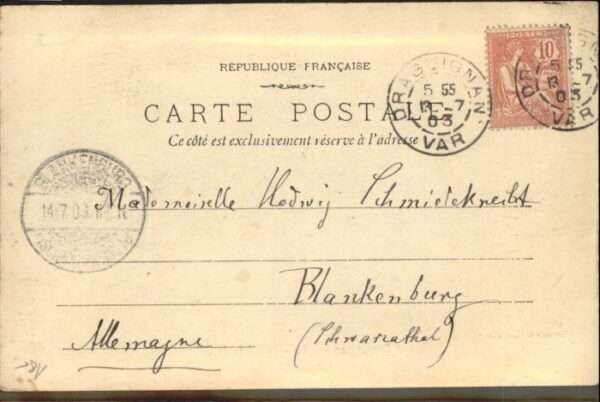 RÉPUBLIQUE FRANÇAISE
CARTE POSTALE
Ce côté est exclusivement réservé à l'adresse
POSTES
10
DRAGUIGNAN
5 55
13 -7
03
VAR
DRAG
5 55
13 -7
03
VAR
BLANKENBURG
14.7.03
Mademoiselle Hedwig Schmiedeknecht
Blankenburg
(Schwarzathal)
Allemagne